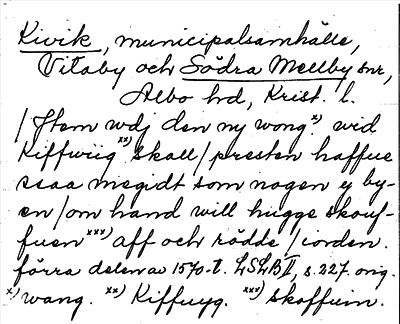 Kivik, municipalsamhälle,
Vitaby och Södra Mellby snr,
Albo hd, Krist. l.
/Jtem wdj den ny wong.x) wid
Kiffwiig xx) skall/presten haffue
ssaa megidt som nogen y by-
en/om hand will hugge skouf-
fuen xxx) aff och rödde/iorden.
förra delen av 1570-t. LSLB II, s. 227. orig.
x) wang. xx) Kiffuyg. xxx) skoffuin.